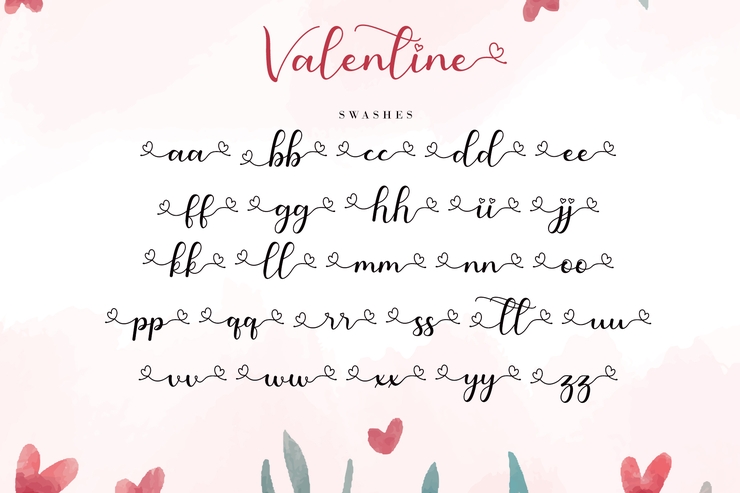 Valentine
SWASHES
aa bb cc dd ee
ff gg hh ii jj
kk ll mm nn oo
pp qq rr ss tt uu
vv ww xx yy zz